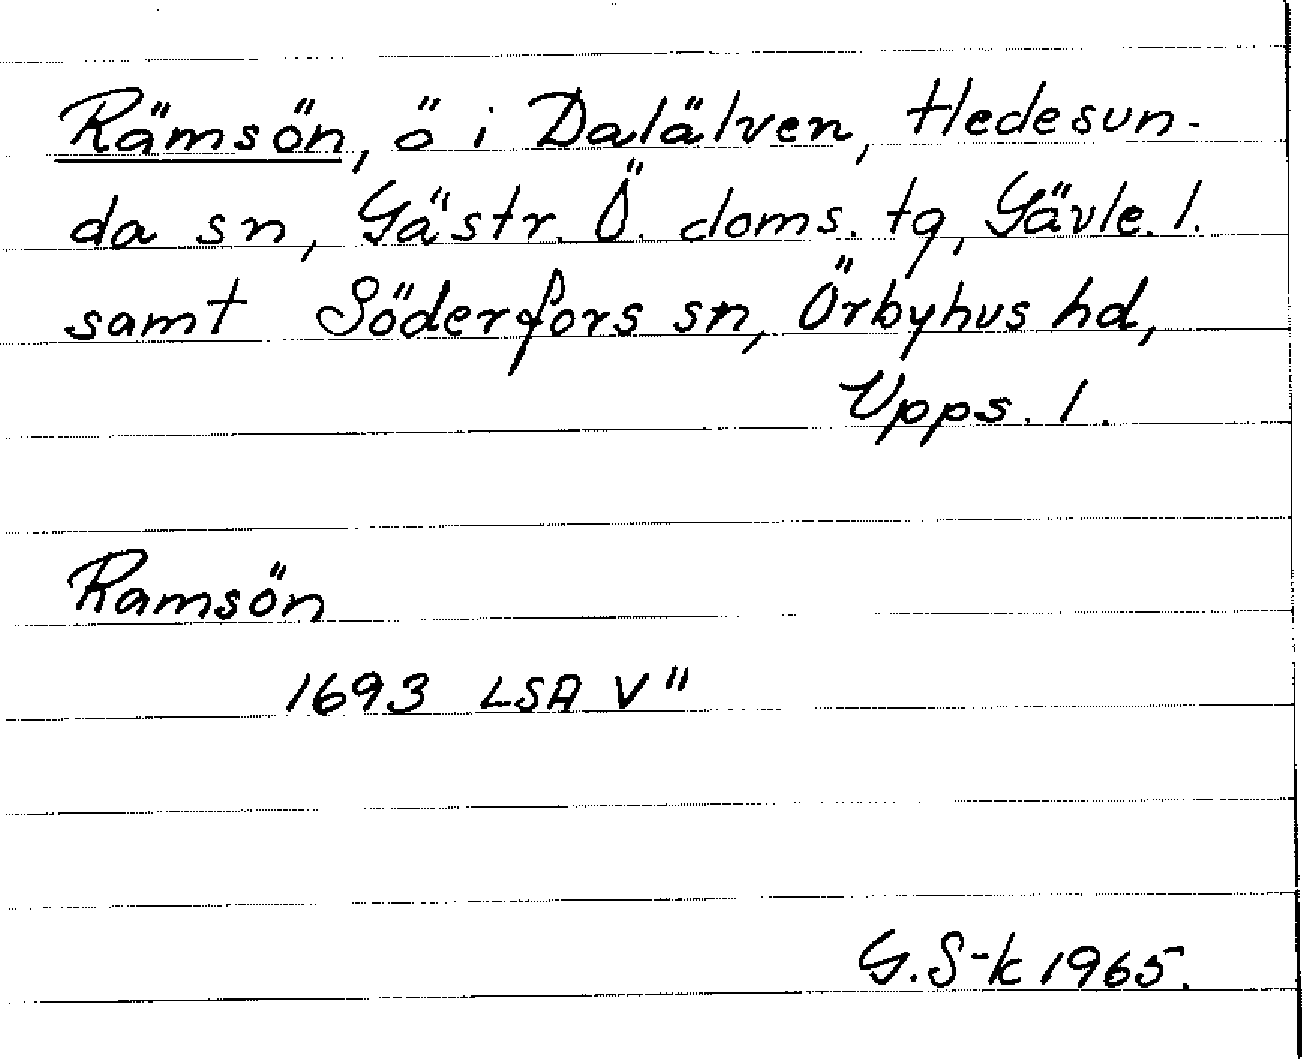 Rämsön, ö i Dalälven, Hedesun-
da sn, Gästr. Ö. doms. tg, Gävle. l.
samt Söderfors sn, Örbyhus hd,
Upps. l.
Ramsön
1693 LSA V"
G. S-k 1965.